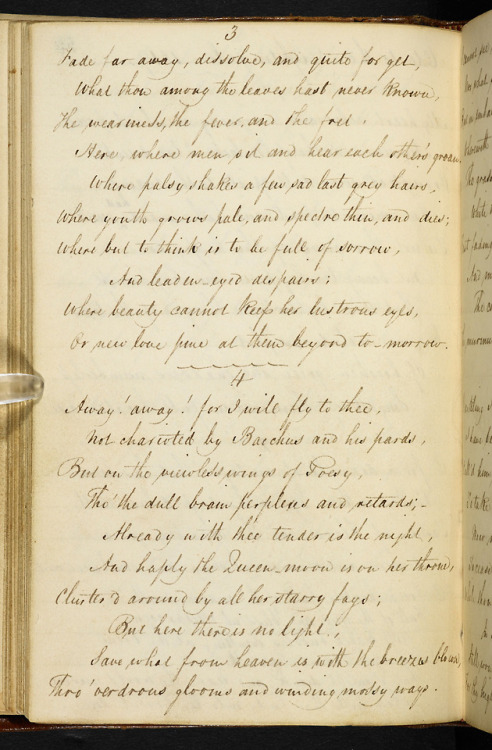 3
Fade far away, dissolve, and quite forget,
What thou among the leaves hast never known,
The weariness, the fever, and the fret.
Here, where men sit and hear each other's groan.
Where palsy shakes a few, sad last grey hairs,
Where youth grows pale, and spectre thin, and dies;
Where but to think is to be full of sorrow,
And leaden-eyed despairs;
Where beauty cannot keep her lustrous eyes,
Or new love pine at them beyond to-morrow.
4
Away! away! for I will fly to thee,
Not charioted by Bacchus and his pards,
But on the viewless wings of Poesy,
Tho' the dull brain perplexes and retards;-
Already with thee tender is the night,
And haply the Queen-moon is on her throne,
Cluster'd around by all her starry fays;
But here there is no light,
Save, what from heaven is with the breezes blown,
Thro' verdrous glooms and winding mossy ways.